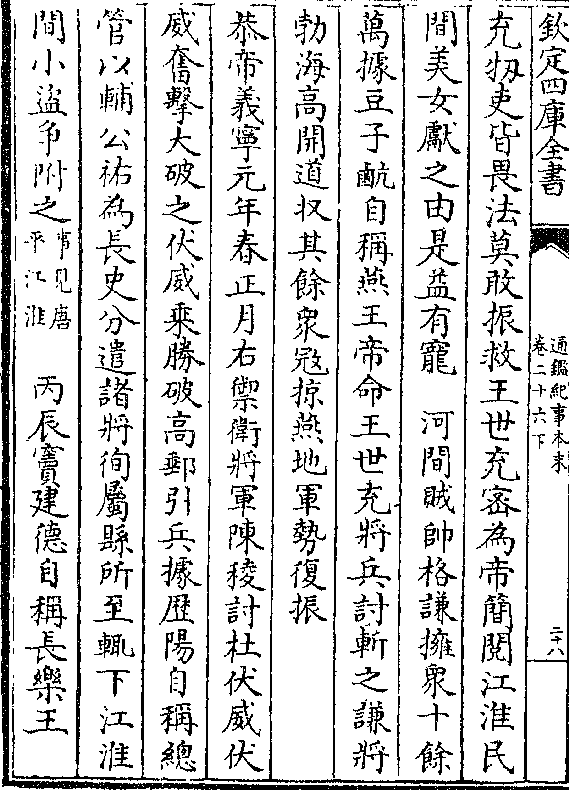 欽定四庫全書
通鑑紀事本末
卷二十六下
二十八
充牣吏皆畏法莫敢振救王世充密為帝簡閱江淮民
間美女獻之由是益有寵　河間賊帥格謙擁衆十餘
萬據豆子䴚自稱燕王帝命王世充將兵討斬之謙將
勃海高開道収其餘衆冦掠燕地軍勢復振
恭帝義寧元年春正月右禦衛將軍陳稜討杜伏威伏
威奮擊大破之伏威乘勝破高郵引兵據歴陽自稱總
管以輔公祏為長史分遣諸將徇屬縣所至輒下江淮
間小盜争附之事見唐平江淮　丙辰竇建德自稱長樂王